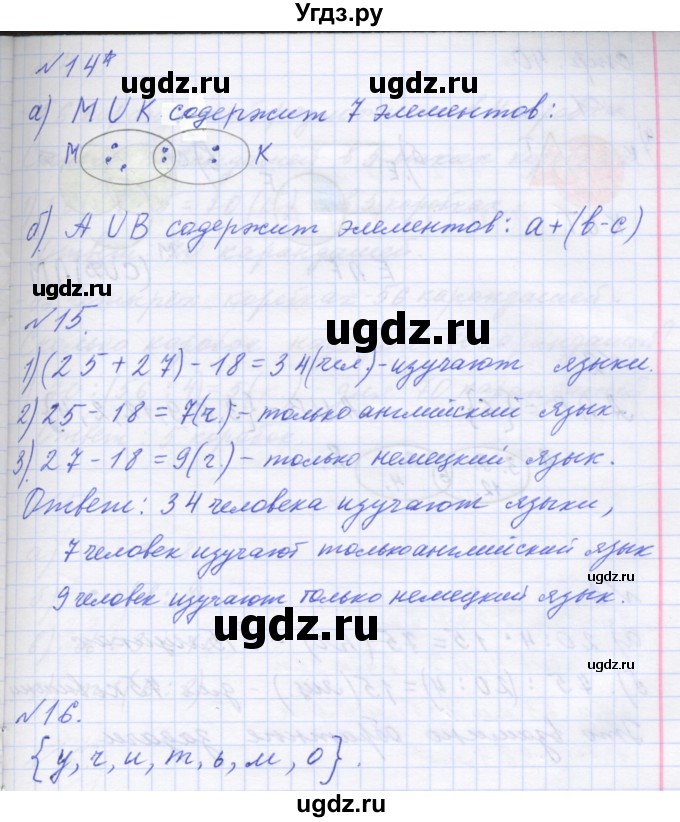 Угдз.ру
№14*
ugdz.ru
ugdz.ru
а) M U K содержит 7 элементов:
M
K
б) A U B содержит элементов: a+(b-c)
ugdz.ru
№15.
1) (25+27)-18=34(чел.)-изучают языки.
ugdz.ru
2) 25-18=7(ч.)-только английский язык.
3) 27-18=9(ч.)-только немецкий язык.
ugdz.ru
Ответ: 34 человека изучают языки,
7 человек изучают только английский язык
ugdz.ru
9 человек изучают только немецкий язык.
ugdz.ru
ugdz.ru
№16.
{у, ч, и, т, ь, м, о}.
ugdz.ru
ugdz.ru